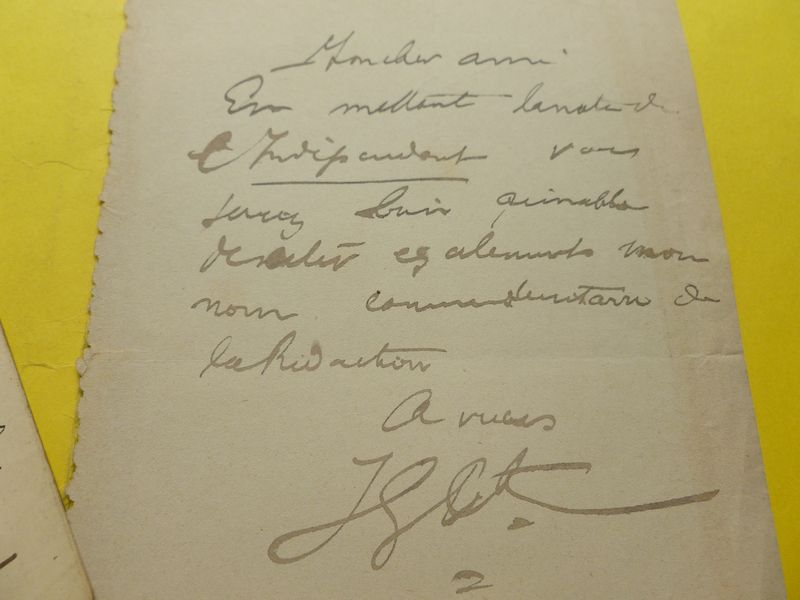 Mon cher ami
En mettant la note de
l'Indépendant vous
serez bien aimable
de citer egalement mon
nom comme secretaire de
la Redaction
A vous